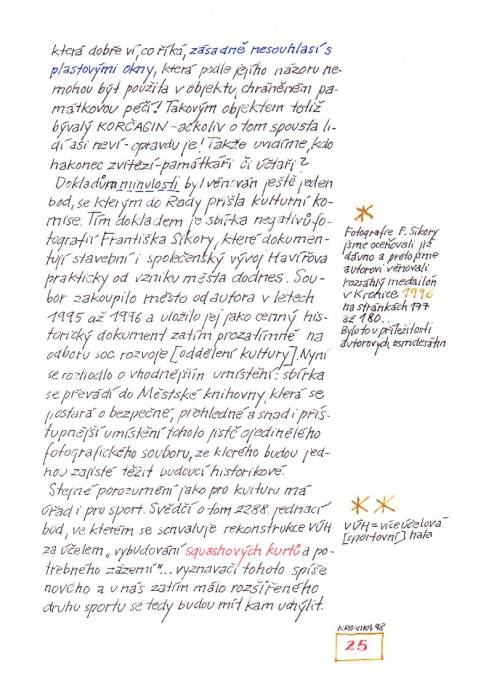 která dobře ví, co říká, zásadně nesouhlasí s
plastovými okny, která podle jejího názoru ne-
mohou být použita v objektu, chráněném pa-
mátkovou péčí! Takovým objektem totiž
bývalý KORČAGIN - ačkoliv o tom spousta li-
dí asi neví - opravdu je! Takže uvidíme, kdo
nakonec zvítězí - památkáři či účtaři?
Dokladům minulosti byl věnován ještě jeden
bod, se kterým do Rady přišla kulturní ko-
mise. Tím dokladem je sbírka negativů fo-
tografií Františka Sikory, které dokumen-
tují stavební i společenský vývoj Havířova
prakticky od vzniku města dodnes. Sou-
bor zakoupilo město od autora v letech
1995 až 1996 a uložilo jej jako cenný his-
torický dokument zatím prozatímně na
odboru soc. rozvoje [oddělení kultury]. Nyní
se rozhodlo o vhodnějším umístění: sbírka
se převádí do Městské knihovny, která se
postará o bezpečné, přehledné a snad i přís-
tupnější umístění tohoto jistě ojedinělého
fotografického souboru, ze kterého budou jed-
nou zajisté těžit budoucí historikové.
Stejné porozumění jako pro kulturu má
úřad i pro sport. Svědčí o tom 2288. jednací
bod, ve kterém se schvaluje rekonstrukce VÚH
za účelem „vybudování squashových kurtů a po-
třebného zázemí"... vyznavači tohoto spíše
nového a u nás zatím málo rozšířeného
druhu sportu se tedy budou mít kam uchýlit.
Fotografie F. Sikory
jsme oceňovali již
dávno a proto jsme
autorovi věnovali
rozsáhlý medailón
v Kronice 1996
na stránkách 177
až 180..
Bylo to u příležitosti
autorových osmdesátin
VÚH = víceúčelová
[sportovní] hala
KRONIKA 98
25